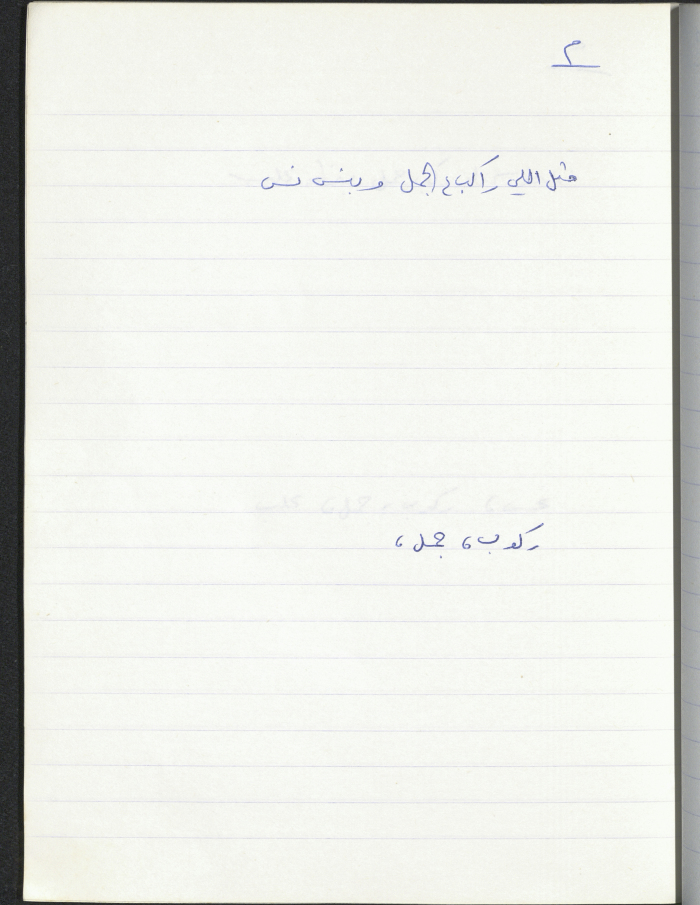 م
مثل اللي راكب ع الجمل و بنس نس
ركوب، جمل،